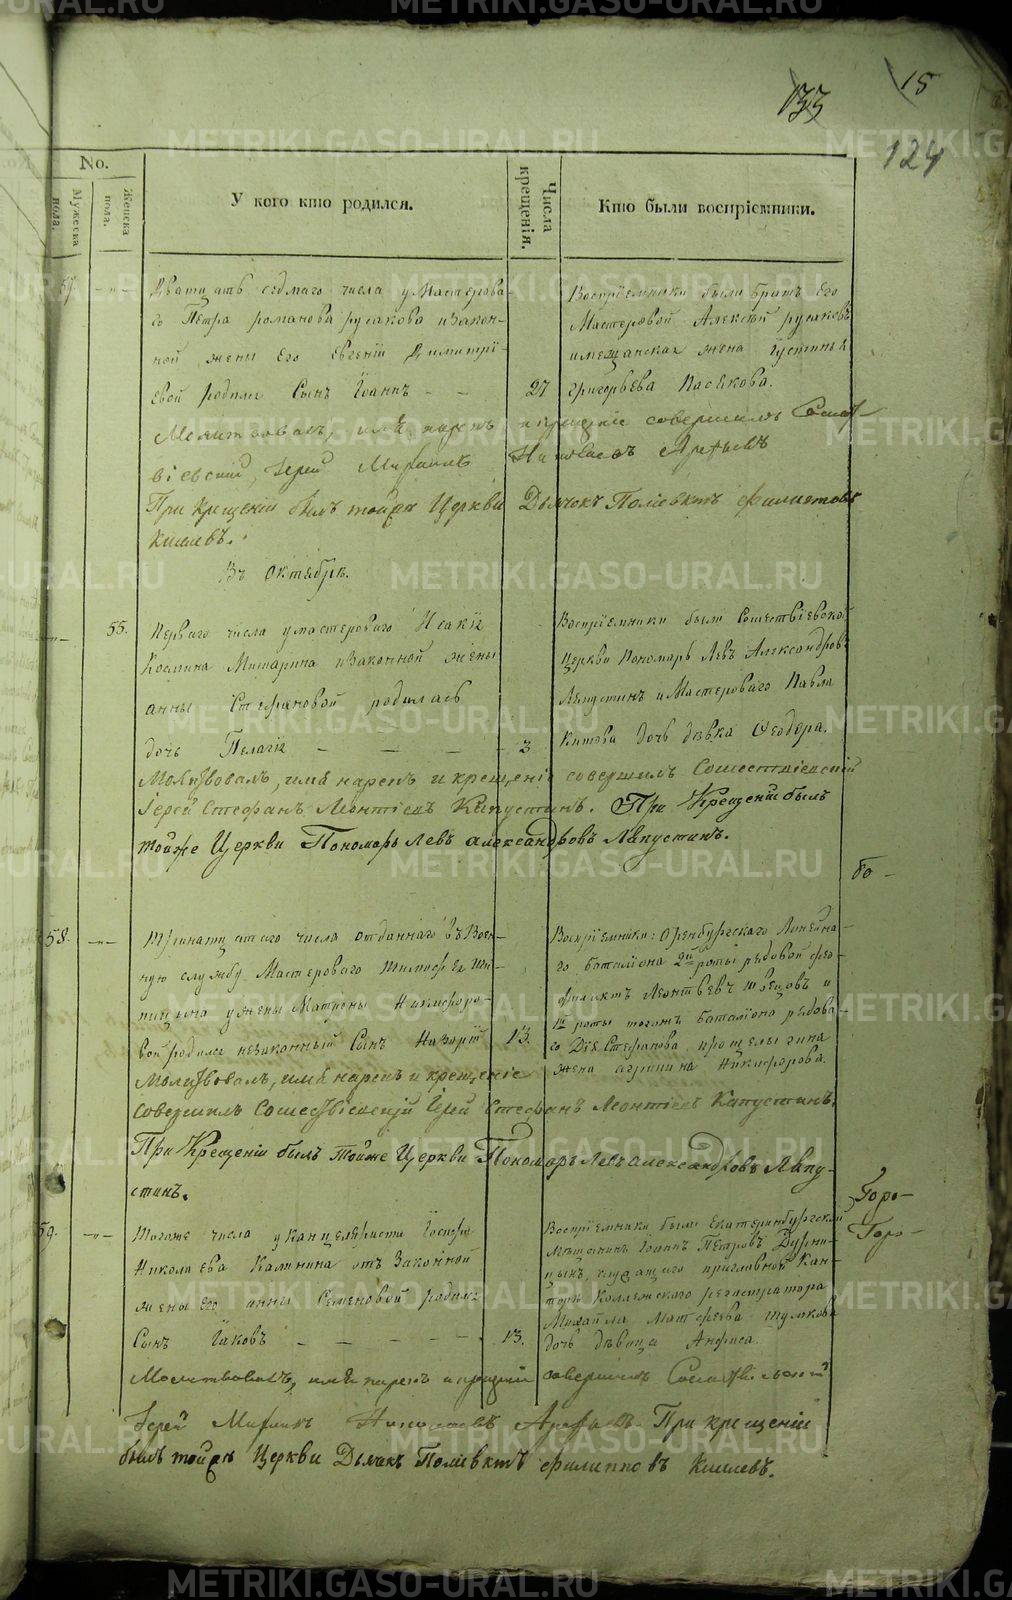 15
133
124
No.
Мужеска пола.
Женска пола.
У кого кто родился.
Числа крещенія.
Кто были воспріемники.
57. — " —
Дватцать седмаго числа у Мастерова-
го Петра Романова Русакова и закон-
ной жены его Евгеніи Димитрі-
евой родился Сынъ Іоаннъ — — 27
Воспріемники были братъ его
Мастеровой Алексѣй Русаковъ
и мещанская жена Іустинья
Григорьева Пасѣкова.
Молитвовалъ, имя нарекъ и крещеніе совершилъ Сошест-
віевский Іерей Мирникъ Николаевъ Арефьевъ
При Крещеніи былъ тойже Церкви Дьячокъ Поліевктъ Филиповъ
Кишевъ.
Въ Октябрѣ.
— " — 55.
Перваго числа у мастероваго Исакія
Космина Митарина и законной жены
анны Стефановой родилась
дочь Пелагія — — — — 3
Воспріемники были Сошествіевской
Церкви Пономарь Левъ Александровъ
Ляпустинъ и Мастероваго Павла
Китова дочь дѣвка Ѳеодора.
Молитвовалъ, имя нарекъ и крещеніе совершилъ Сошествіевскій
Іерей Стефанъ Леонтіевъ Капустинъ. При Крещеніи былъ
тойже Церкви Пономарь Левъ Александровъ Ляпустинъ.
бо —
58. — " —
Тринатцатаго числа отданнаго въ Воен-
ную службу Мастероваго Тимофея Ши-
пицына у жены Матроны Никифоро-
вой родился незаконный Сынъ Назарій 13.
Воспріемники: Оренбургскаго Линейна-
го баталіона 2й роты рядовой Фео-
филактъ Леонтьевъ Швецовъ и
1й роты тогожъ баталіона рядова-
го Дія Стефанова Прощелыгина
жена агрипина Никифорова.
Молитвовалъ, имя нарекъ и крещеніе
совершилъ Сошествіевскій Іерей Стефанъ Леонтіевъ Капустинъ.
При Крещеніи былъ тойже Церкви Пономарь Левъ Александровъ Ляпу-
стинъ.
Горо —
Горо —
59. — " —
Тогоже числа у Канцеляриста Іосифа
Николаева Калинина отъ законной
жены его анны Семеновой родился
Сынъ Іаковъ — — — — 13.
Воспріемники были Екатеринбургской
Мѣщанинъ Іоаннъ Петровъ Дурни-
цынъ, служащаго приглавной Кан-
торѣ Коллежскаго регистратора
Михайла Матфеева Шумкова
дочь дѣвица Анфиса.
Молитвовалъ, имя нарекъ и крещеніе совершилъ Сошествіевскій
Іерей Мирникъ Николаевъ Арефьевъ При крещеніи
былъ тойже Церкви Дьячокъ Поліевктъ Филипповъ Кишевъ.
METRIKI.GASO-URAL.RU